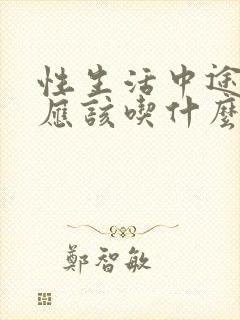 性生活中途
應該喫什麼
鄭智敏